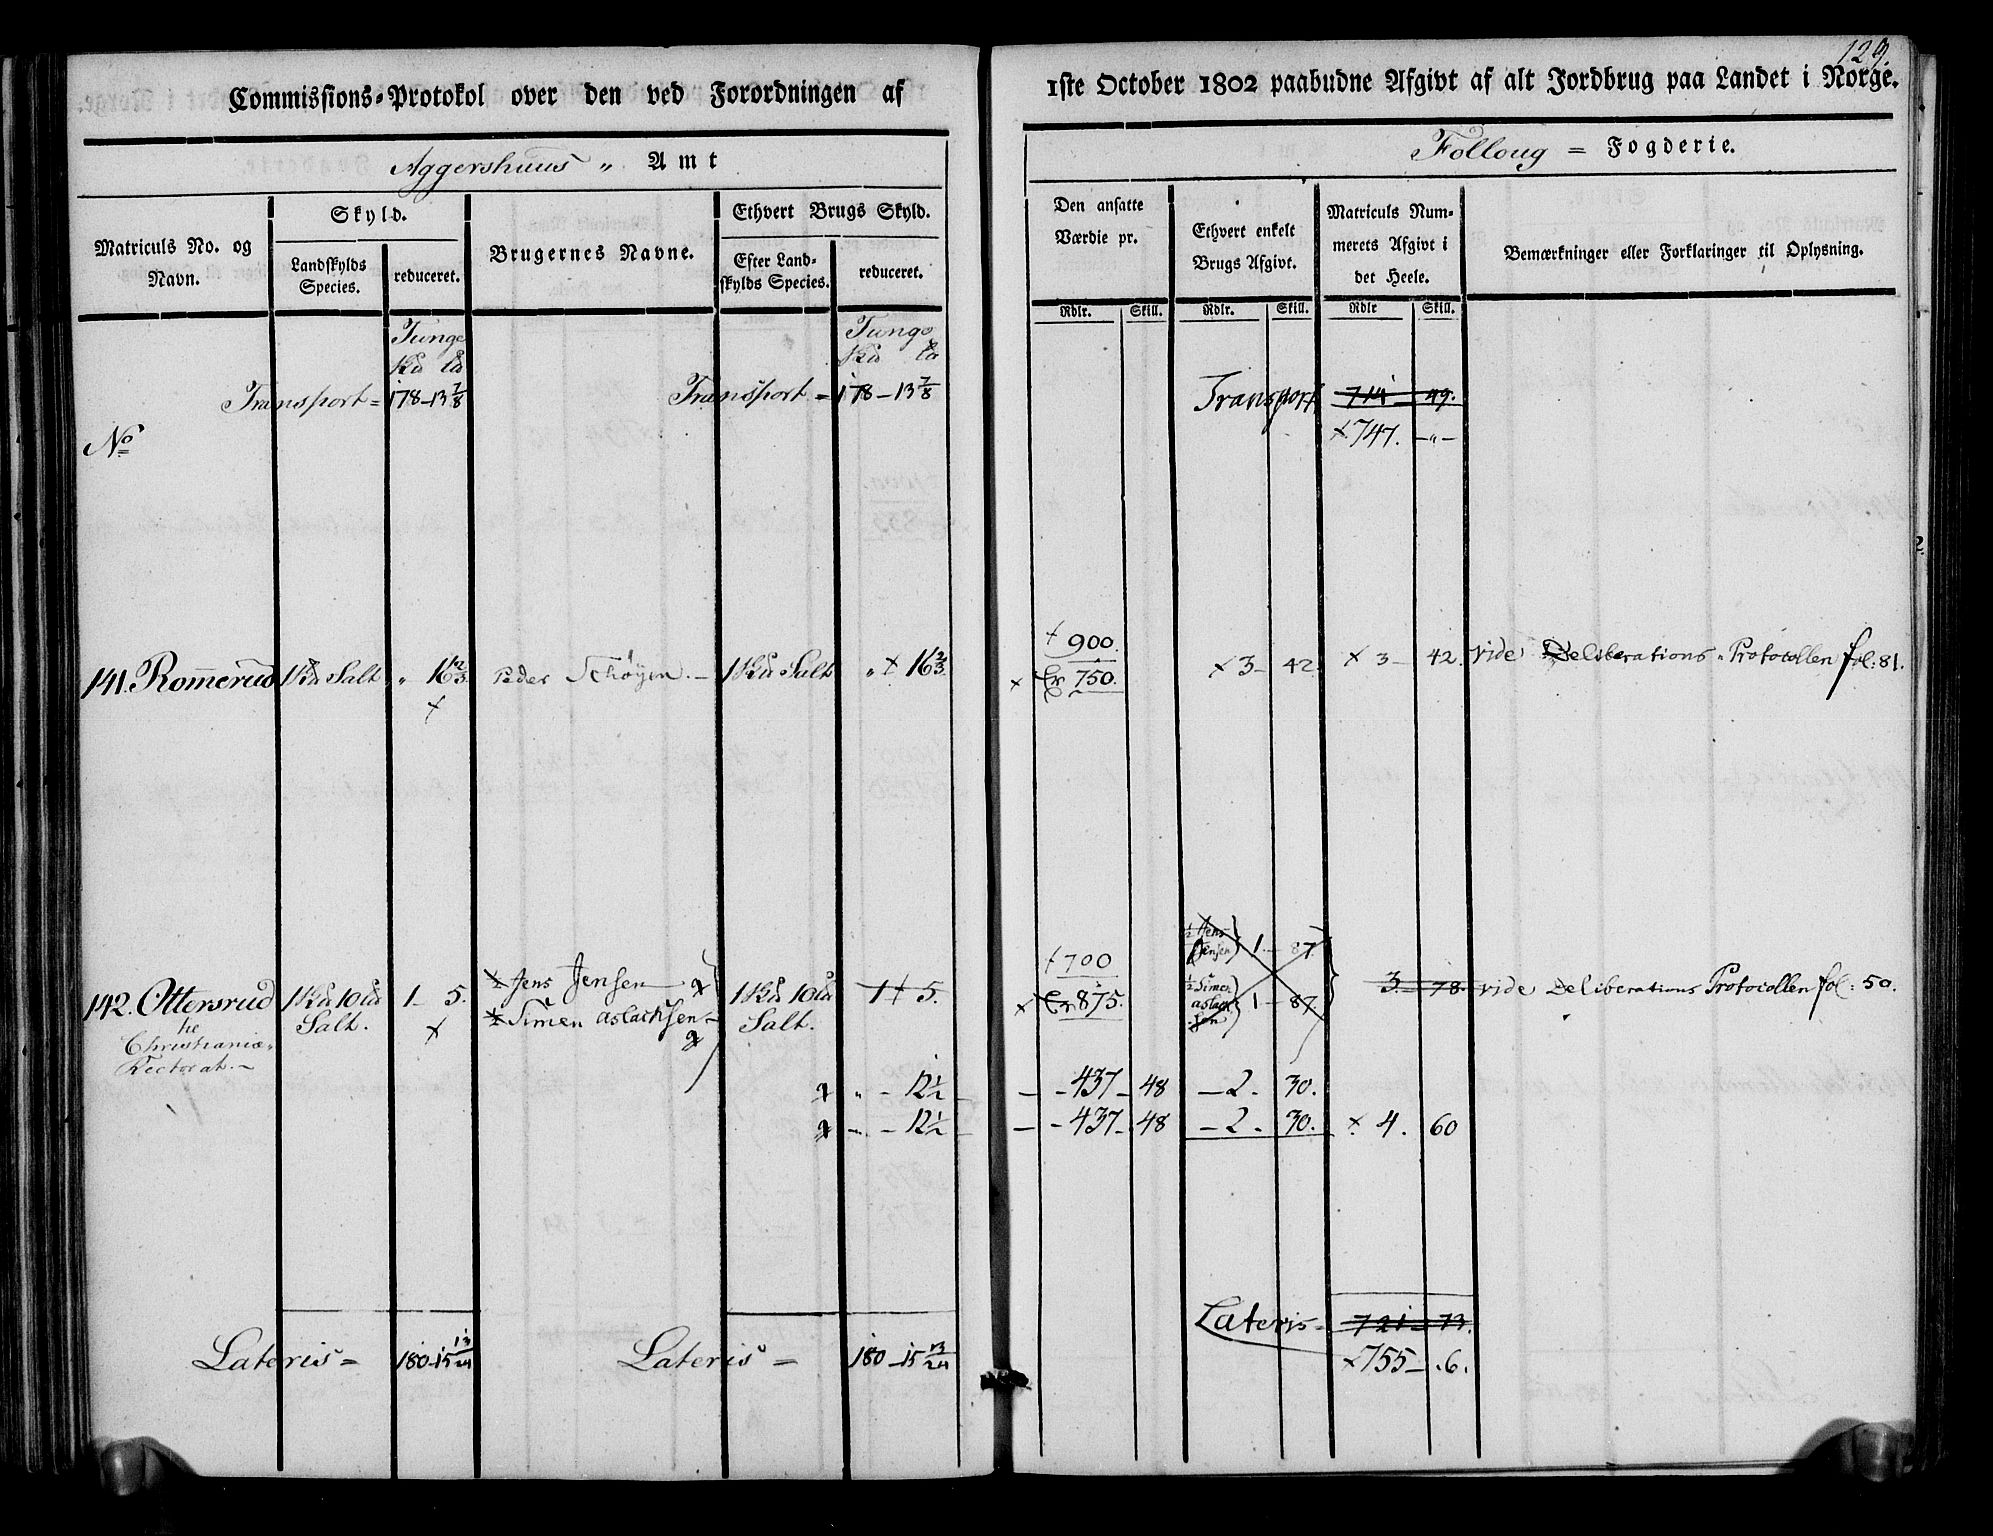 129.
Commissions-Protokol over den ved Forordningen af
1ste October 1802 paabudne Afgivt af alt Jordbrug paa Landet i Norge.
Aggershuus „ Amt
Folloug = Fogderie.
Matriculs No. og Navn.
Skyld.
Landskylds Species.
reduceret.
Brugernes Navne.
Ethvert Brugs Skyld.
Efter Land-skylds Species.
reduceret.
Den ansatte Værdie pr.
Rdlr. Skill.
Ethvert enkelt Brugs Afgivt.
Rdlr. Skill.
Matriculs Num-merets Afgivt i det Heele.
Rdlr Skill.
Bemærkninger eller Forklaringer til Oplysning.
Tunge Tunge
Transport = 178 - 13 7/8 Transport = 178 - 13 7/8 Transport 714 - 49.
x 747. - „ -
No
x 900.
141. Romerud 1 Salt „ 16 2/3 Peder Schøyen. - 1 Salt „ x 16 2/3 x Er 750. x 3 - 42. x 3 - 42. vide Deliberations Protocollen fol: 81.
x
1/2 Jens Jensen 1 - 87.
x 700
142. Ottersrud 1 10 1 - 5. 1/2 Jens Jensen 1 10 1 x 5. x Er 875. 1/2 Simen Aslachsen 1 - 87. 3 - 78. vide Deliberations Protocollen fol: 50.
he Salt. x 1/2 Simen Aslachsen Salt.
Christianiæ
Rectorat. -
„ - 12 1/2 - 437 - 48 - 2 - 30.
- 12 1/2 - 437 - 48 - 2 - 30. x 4. 60
Lateris = 721 - 73.
Lateris = 180 - 15 13/24 Lateris = 180 - 15 13/24 x 755 - 6.